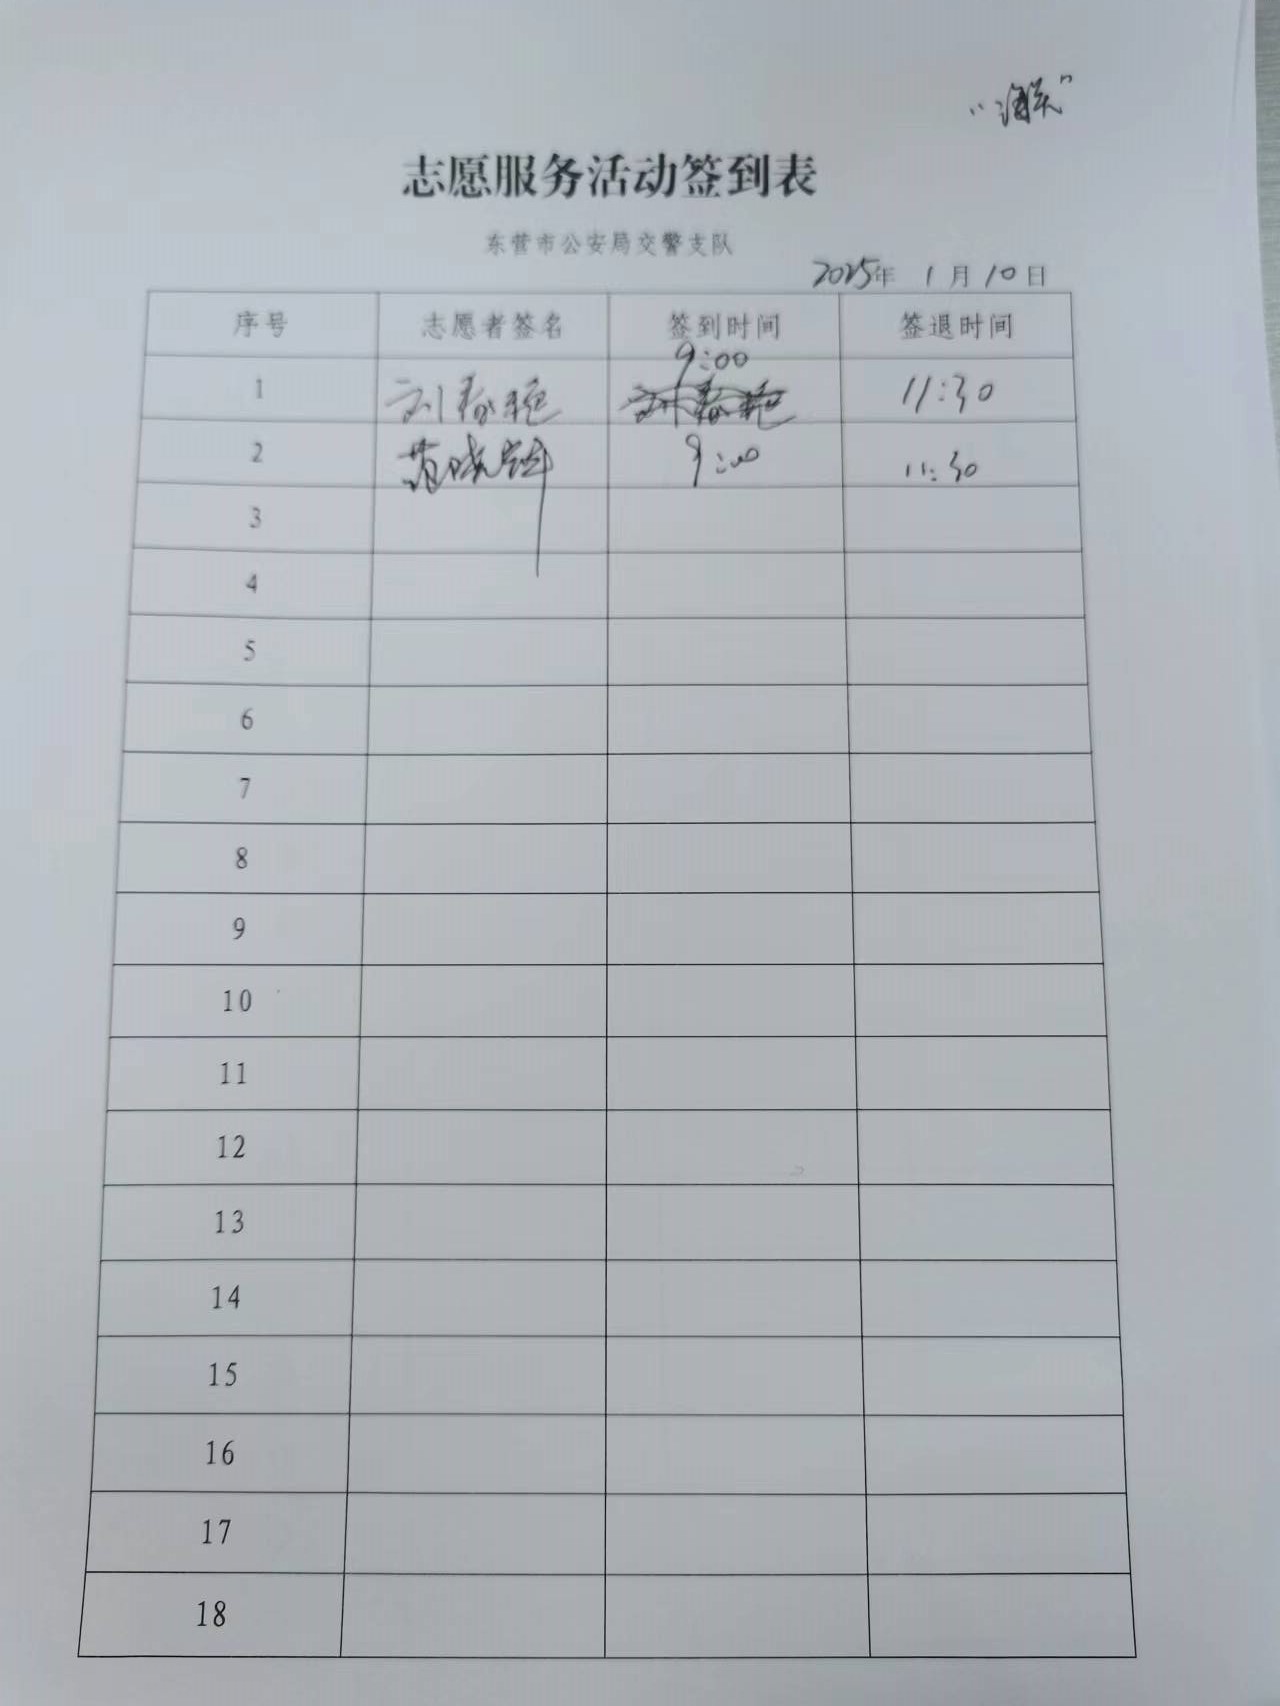 “海关”
志愿服务活动签到表
东营市公安局交警支队
2025年 1月10日
序号 志愿者签名 签到时间 签退时间
9:00
1 刘春艳 刘春艳 11:30
2 9:00 11:30
3
4
5
6
7
8
9
10
11
12
13
14
15
16
17
18